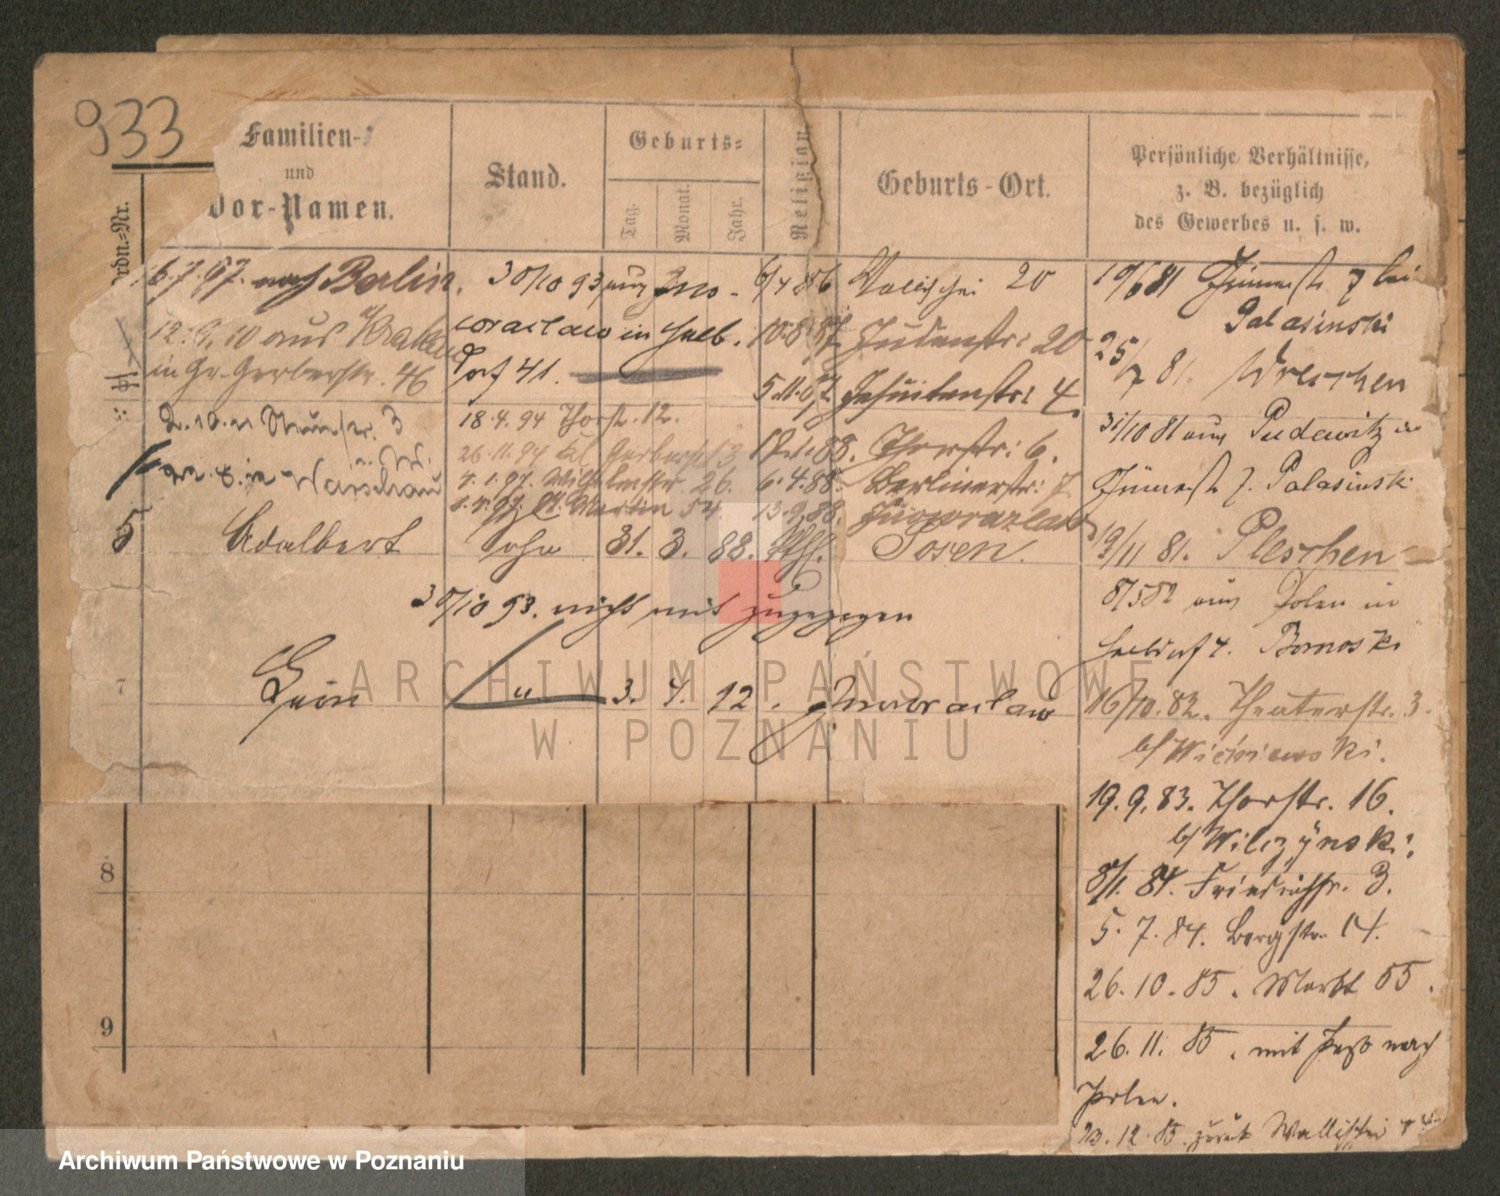 933
Familien-
und
Vor-Namen.
Stand.
Geburts-
Tag.
Monat.
Jahr.
Religion.
Geburts-Ort.
Persönliche Verhältnisse,
z. B. bezüglich
des Gewerbes u. s. w.
rdn.-Nr.
6.7.97. nach Berlin.
12.9.10 aus Krakau
in Gr. Gerberstr. 46
3
in Warschau
30/10 93 nach Ino-
wraclaw in Halb
dorf 41.
18.4.94 Thorstr. 12.
26.11.94 Kl. Gerberstr. 3
1.97. Wilhelmstr. 26.
97. St. Martin 54.
6/4 86 Wallischei 20
10.8.87. Judenstr: 20
Jesuitenstr: 4.
12.1.88. Thorstr: 6.
6.4.88. Berlinerstr: 7
13.9.88. Inowrazlaw
5
Adalbert
Sohn
31.
3.
88.
Posen.
30/10 93. nicht mit zugezogen
7
"
3.
4.
12.
Inowraclaw
8
9
10/6 81
7 bei
Palasinski
25/7 81. Wreschen
31/10 81 aus Pudewitz in
7. Palasinski
19/11 81. Pleschen
8/5 82 aus Polen in
Halbdorf 4. Bornoski
16/10. 82. Theaterstr. 3.
b/ Wisniewski.
19.9.83. Thorstr. 16.
b/ Wilczynski.
8/1. 84. Friedrichstr. 3.
5.7.84. Bergstr. 14.
26.10.85. Markt 55.
26.11.85. mit Paß nach
Polen.
23.12.85. zurück Wallischei
ARCHIWUM PAŃSTWOWE
W POZNANIU
Archiwum Państwowe w Poznaniu